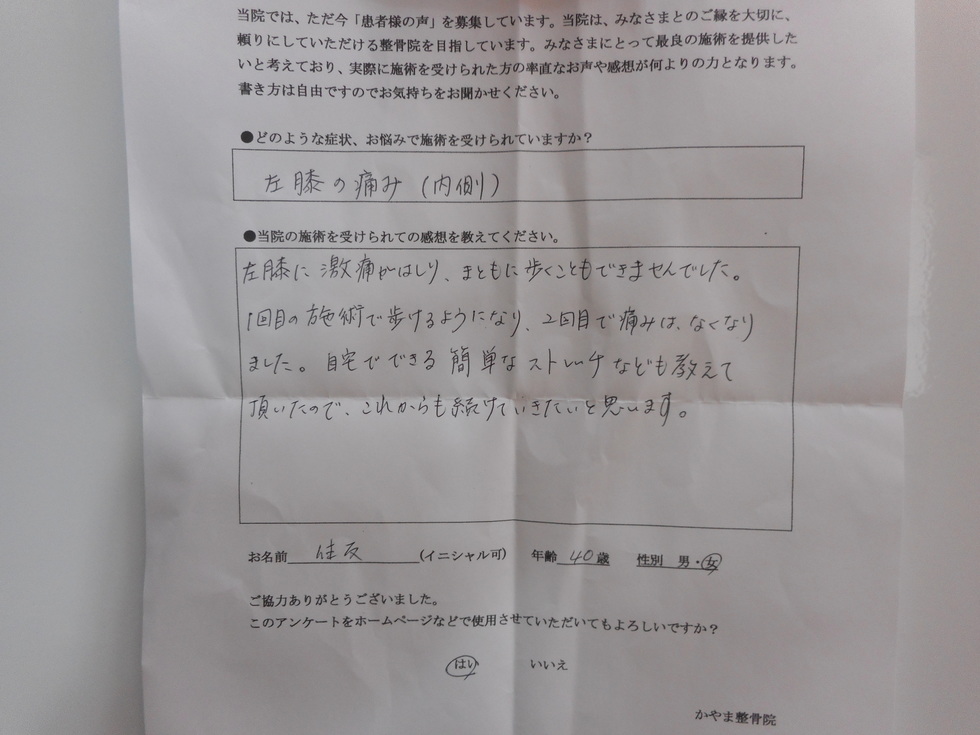 当院では、ただ今「患者様の声」を募集しています。当院は、みなさまとのご縁を大切に、
頼りにしていただける整骨院を目指しています。みなさまにとって最良の施術を提供した
いと考えており、実際に施術を受けられた方の率直なお声や感想が何よりの力となります。
書き方は自由ですのでお気持ちをお聞かせください。
●どのような症状、お悩みで施術を受けられていますか？
左膝の痛み（内側）
●当院の施術を受けられての感想を教えてください。
左膝に激痛がはしり、まともに歩くこともできませんでした。
1回目の施術で歩けるようになり、2回目で痛みは、なくなり
ました。自宅でできる簡単なストレッチなども教えて
頂いたので、これからも続けていきたいと思います。
お名前 住友 (イニシャル可) 年齢 40 歳 性別 男・女
ご協力ありがとうございました。
このアンケートをホームページなどで使用させていただいてもよろしいですか？
はい いいえ
かやま整骨院